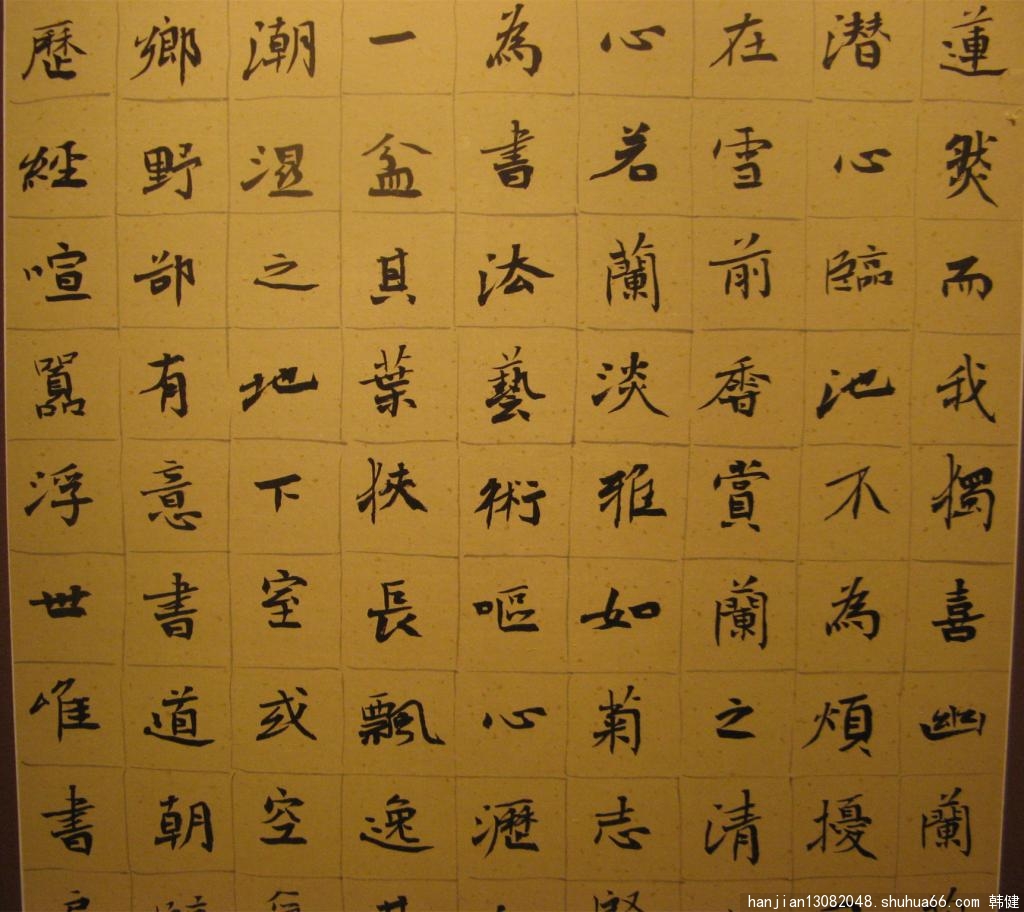 蓮然而我獨喜幽蘭
潜心臨池不為煩擾
在雪前香賞蘭之清
心若蘭淡雅如菊志
為書法藝術嘔心瀝
一盆其葉挾長飄逸
潮濕之地下室或空
鄉野部有意書道朝
歷經喧囂浮世唯書
hanjian13082048.shuhua66.com 韩健